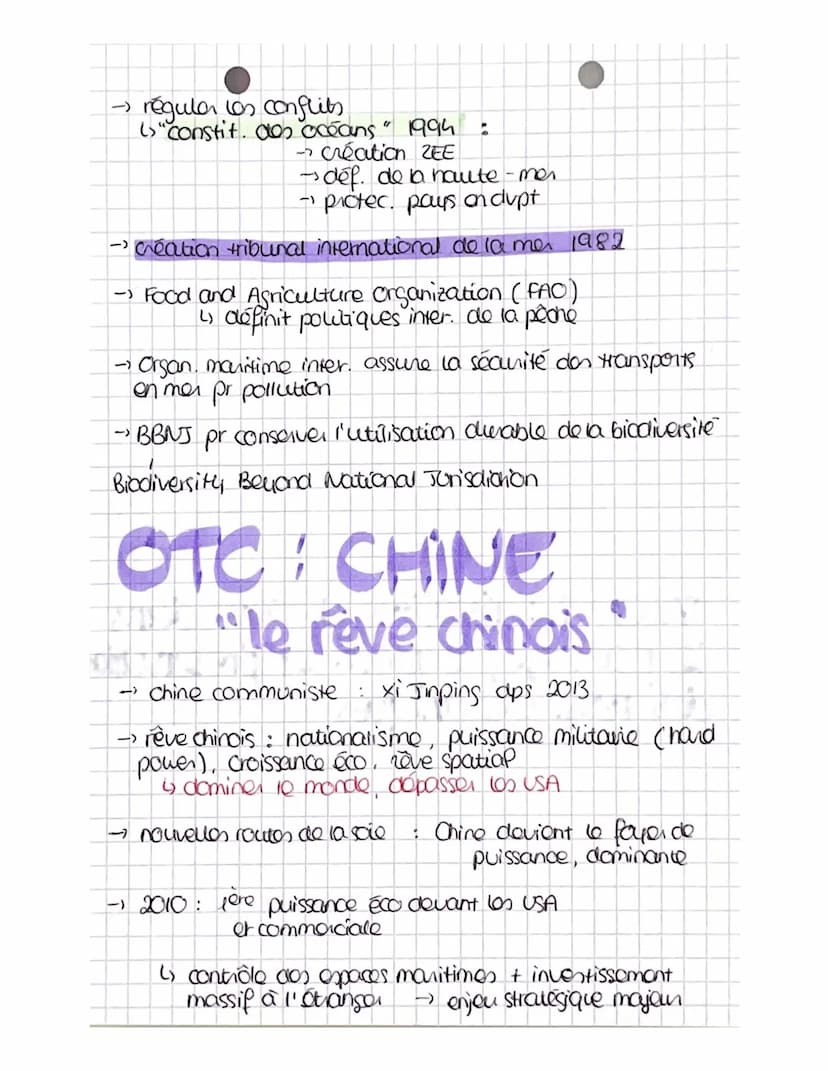 → réguler les conflits
↳ "constit. des océans" 1994 :
→ création ZEE
→ déf. de la haute-mer
→ protec. pays en dvpt
→ création tribunal international de la mer 1982
→ Food and Agriculture Organization (FAO)
↳ définit politiques inter. de la pêche
→ Organ. maritime inter. assure la sécurité des transports
en mer pr pollution
→ BBNJ pr conserver l'utilisation durable de la biodiversité
Biodiversity Beyond National Jurisdiction
OTC : CHINE
"le rêve chinois"
→ Chine communiste : Xi Jinping dps 2013
→ rêve chinois : nationalisme, puissance militaire (hard
power), croissance éco, rêve spatial
↳ dominer le monde, dépasser les USA
→ nouvelles routes de la soie : Chine devient le foyer de
puissance, dominante
→ 2010 : 1ère puissance éco devant les USA
et commerciale
↳ contrôle des espaces maritimes + investissement
massif à l'étranger → enjeu stratégique majeur